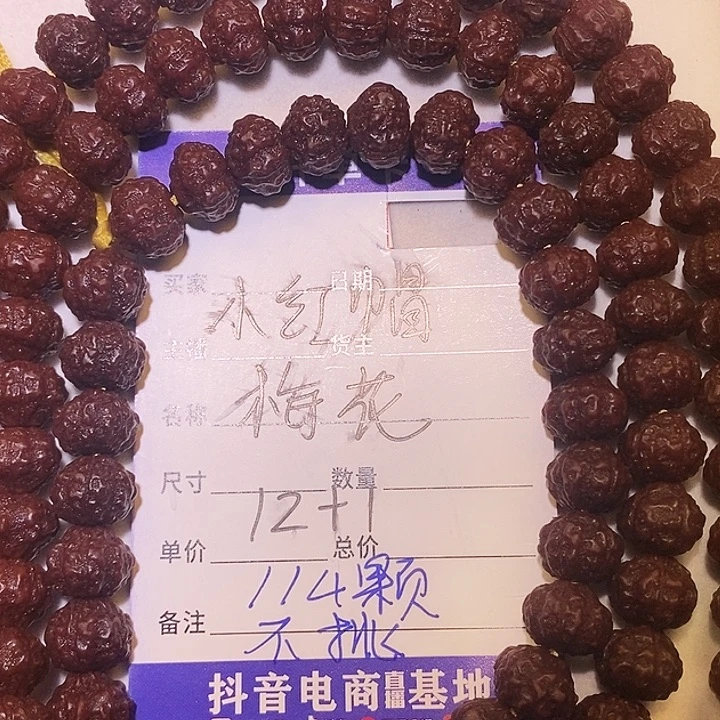 买家 日期
小红帽
货主
梅花
名称
尺寸 数量
12+1
单价 总价
114颗
备注
不挑
抖音电商直播基地